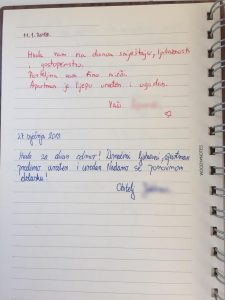 11.1.2018.
Hvala vam na divnom smještaju, ljubaznosti
i gostoprimstvu.
Apartman je lijepo uređen i ugodan.
Vaši
27. siječnja 2018
Hvala za divan odmor! Domaćini ljubazni, apartman
predivno uređen i uredan. Nadamo se ponovnom
dolasku!
Obitelj
WOODYNOTES